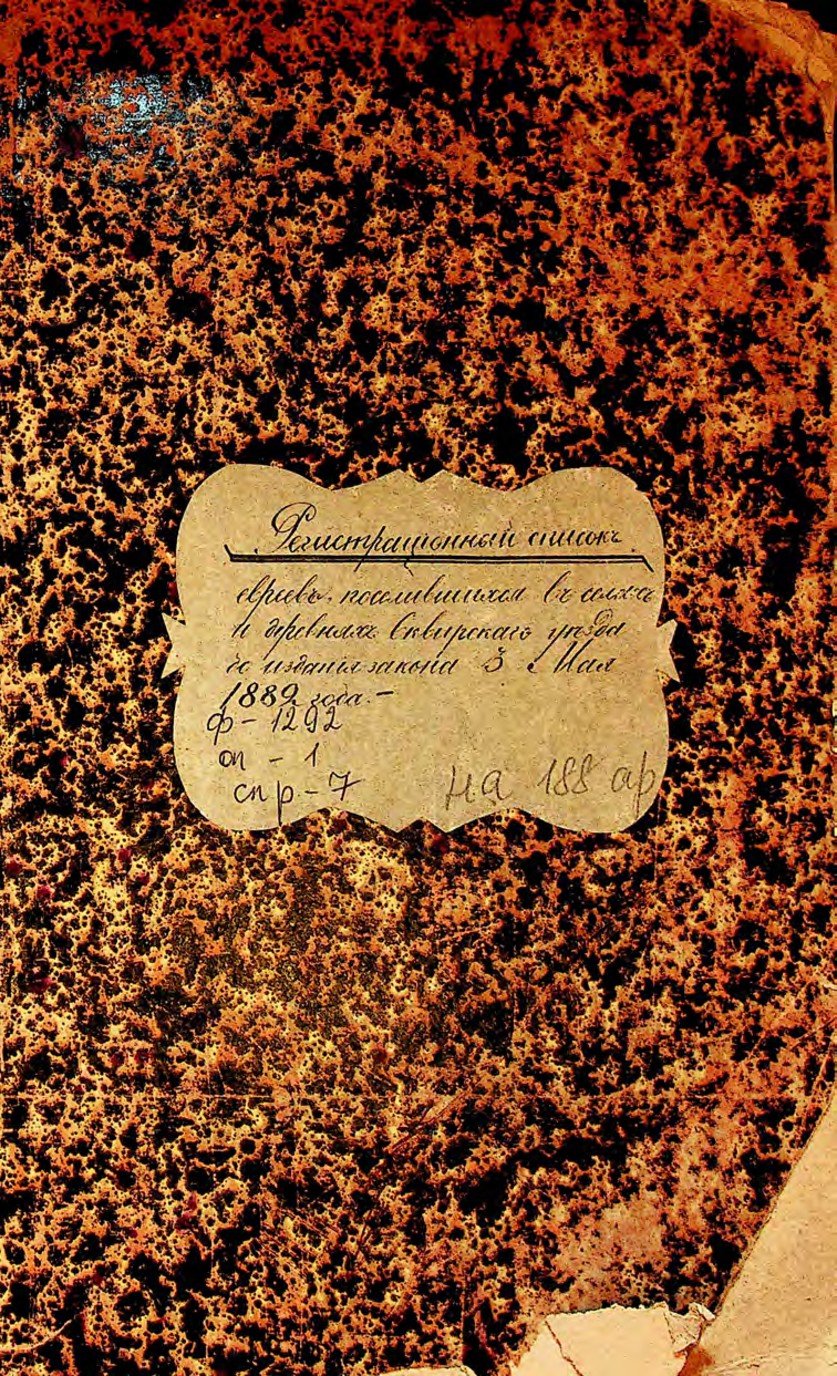 Регистраціонный списокъ
евреевъ, поселившихся въ селахъ
и деревняхъ Сквирскаго уѣзда
до изданія закона 3 Мая
1882 года. –
ф – 1292
оп – 1
спр. – 7
на 188 ар